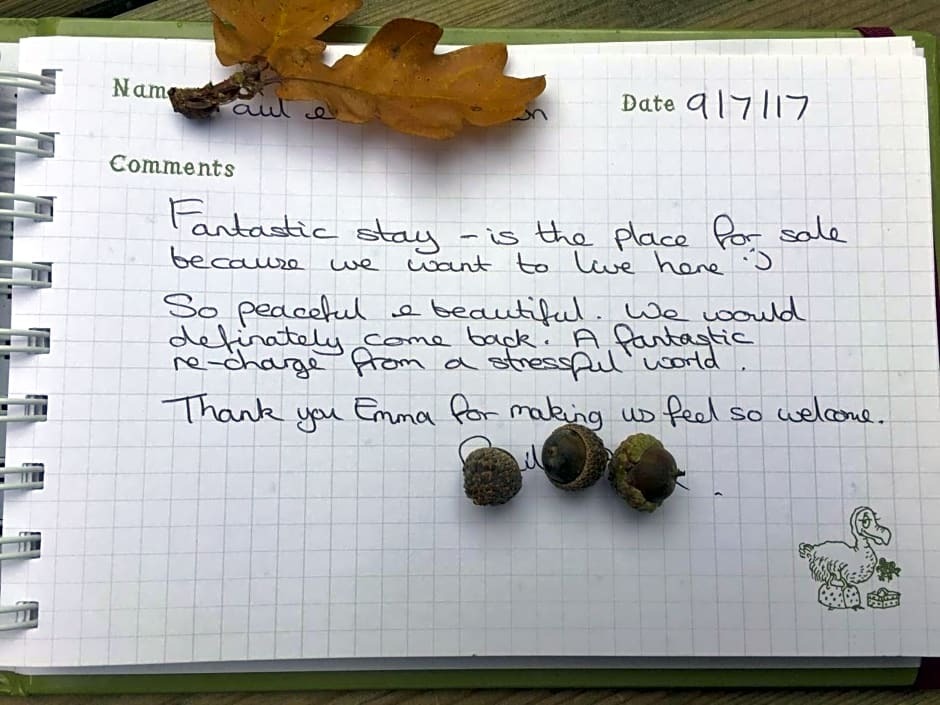 Name
Date 9/7/17
Comments
Fantastic stay - is the place for sale
because we want to live here :)
So peaceful & beautiful. We would
definately come back. A fantastic
re-charge from a stressful world.
Thank you Emma for making us feel so welcome.